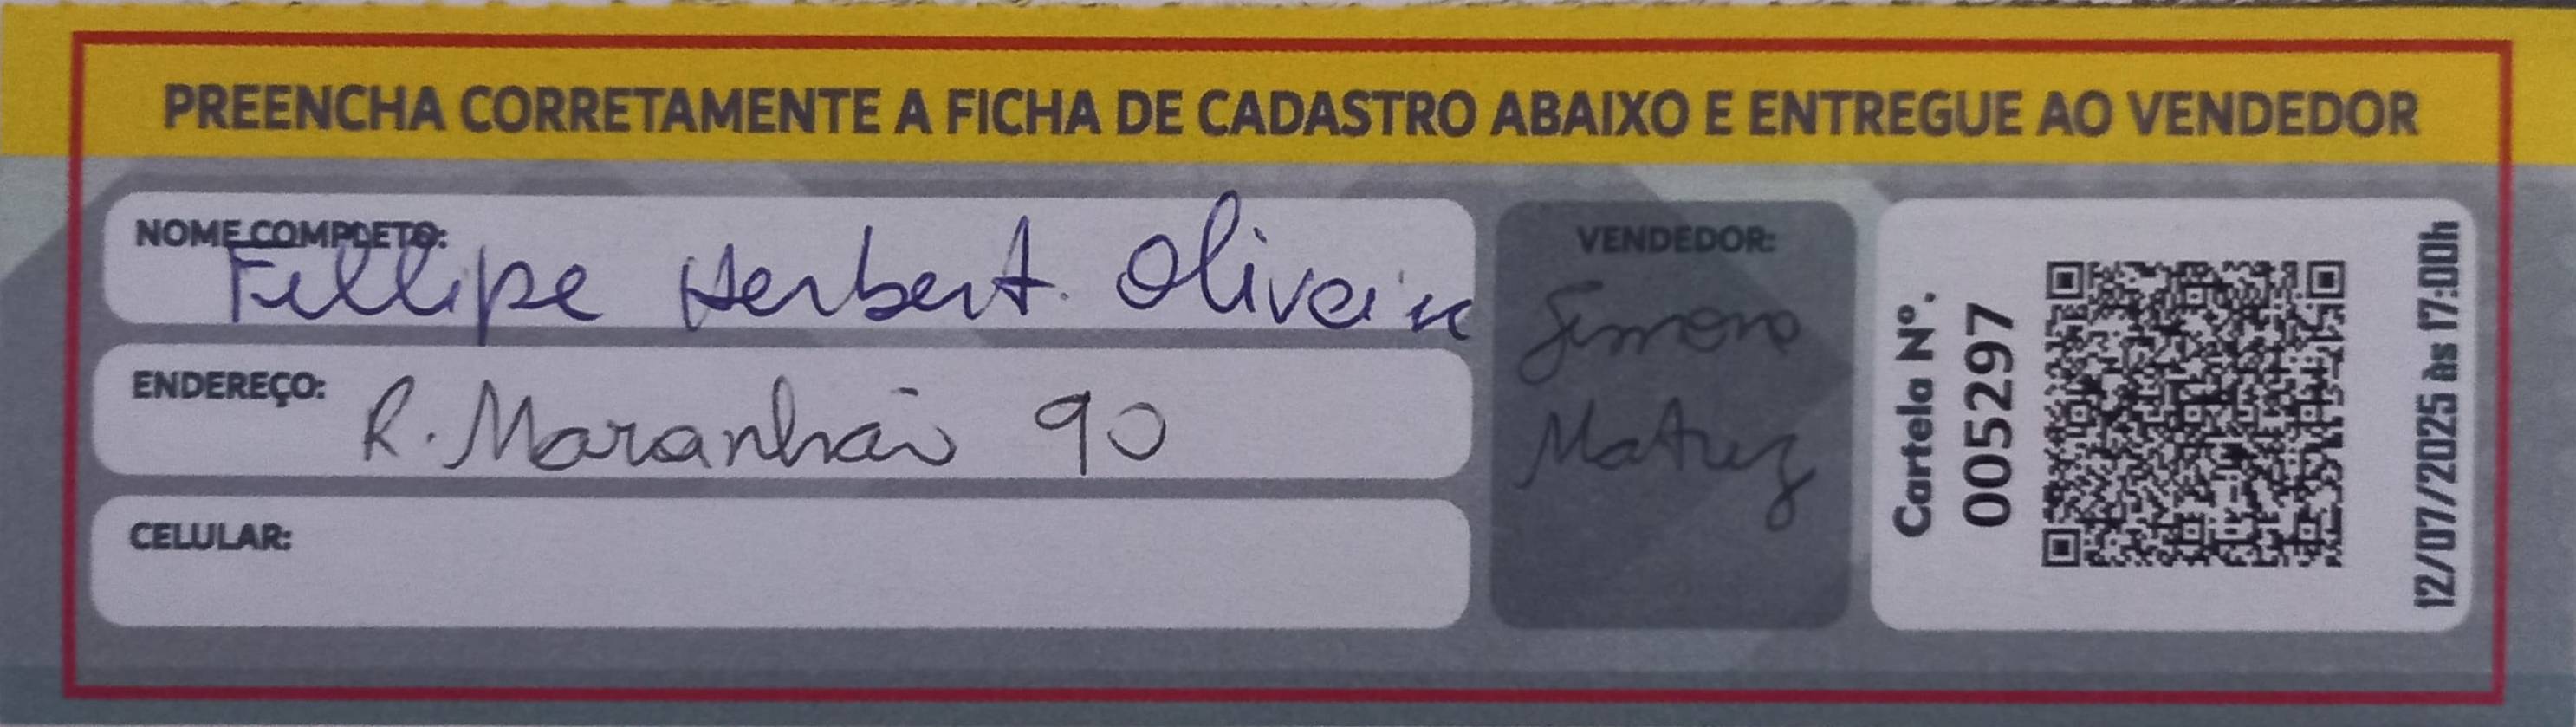 PREENCHA CORRETAMENTE A FICHA DE CADASTRO ABAIXO E ENTREGUE AO VENDEDOR
NOME COMPLETO:
Fellipe Herbert Oliveira
ENDEREÇO:
R. Maranhão 90
CELULAR:
VENDEDOR:
Simone
Matriz
Cartela Nº.
005297
12/07/2025 às 17:00h